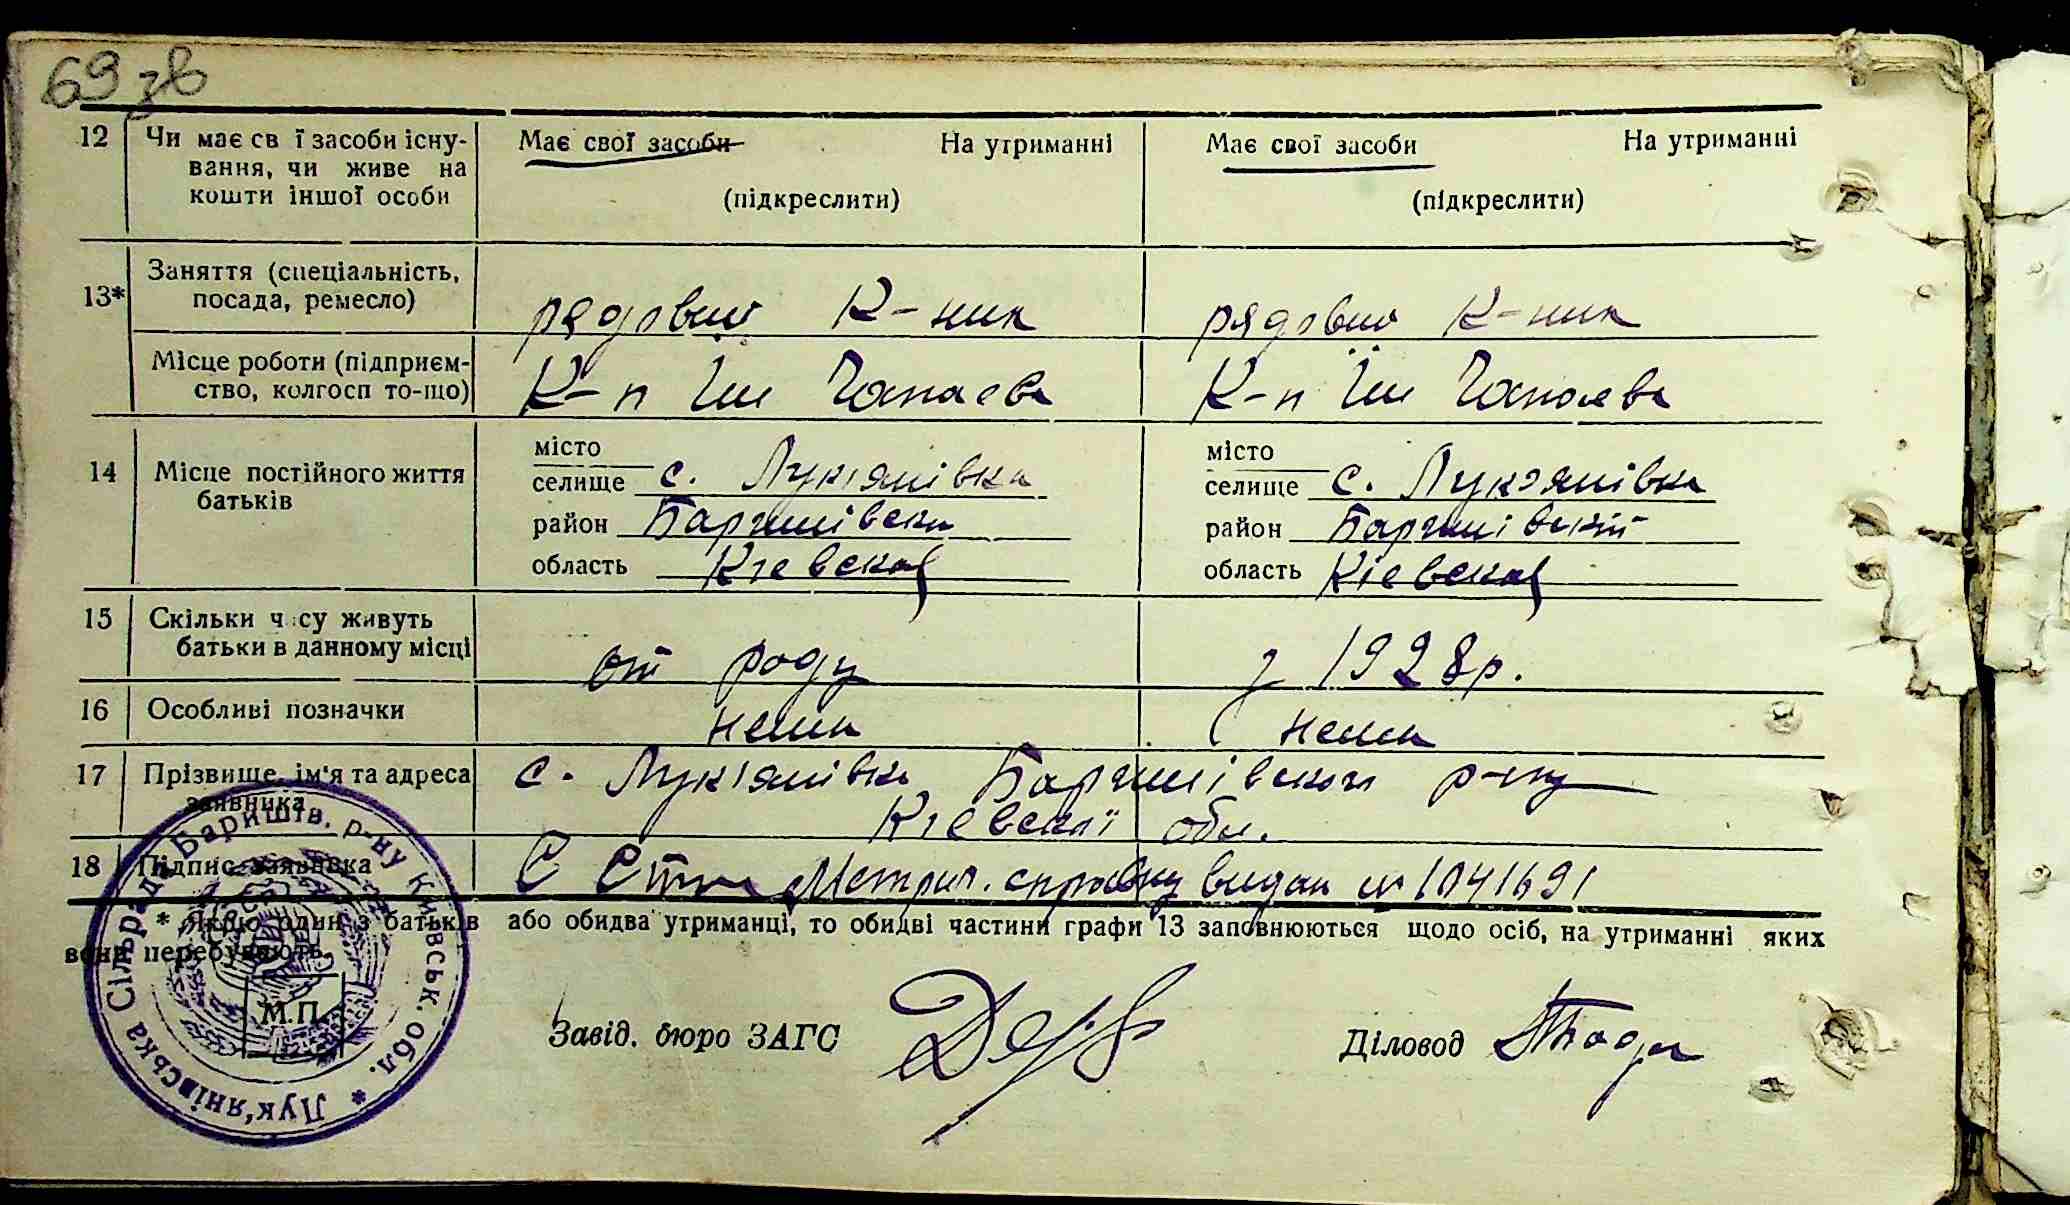 69 зв
12 Чи має св ї засоби існу- Має свої засоби На утриманні Має свої засоби На утриманні
вання, чи живе на
кошти іншої особи (підкреслити) (підкреслити)
Заняття (спеціальність,
13* посада, ремесло) рядовий К-ник рядовий К-ник
Місце роботи (підприєм-
ство, колгосп то-що) К-п Їм Чапаєва К-п Їм Чапаєва
місто місто
14 Місце постійного життя селище с. Лукіянівка селище с. Лук'янівка
батьків район Баришівски район Баришівский
область Кіевскоі область Кіевскоі
15 Скільки ч су живуть
батьки в данному місці от роду з 1928р.
16 Особливі позначки нема нема
17 Прізвище, ім'я та адреса с. Лукіянівка Баришівского р-ну
заявника Кіевскої обл.
18 Підпис заявника С Метрич. справку видан № 1041691
* Якщо один з батьків або обидва утриманці, то обидві частини графи 13 заповнюються щодо осіб, на утриманні яких
вони перебувають.
М.П.
Завід. бюро ЗАГС Діловод
Лук'янівська Сільрада Баришів. р-ну Київськ. обл. *